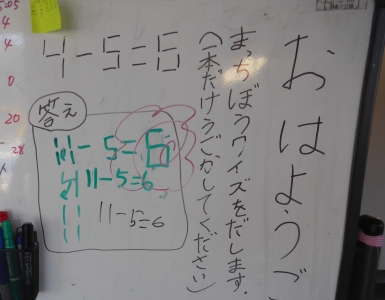 おはようご
まっちぼうクイズをだします.
(一本だけうごかしてください)
4-5=6
答え
11-5=6
11-5=6